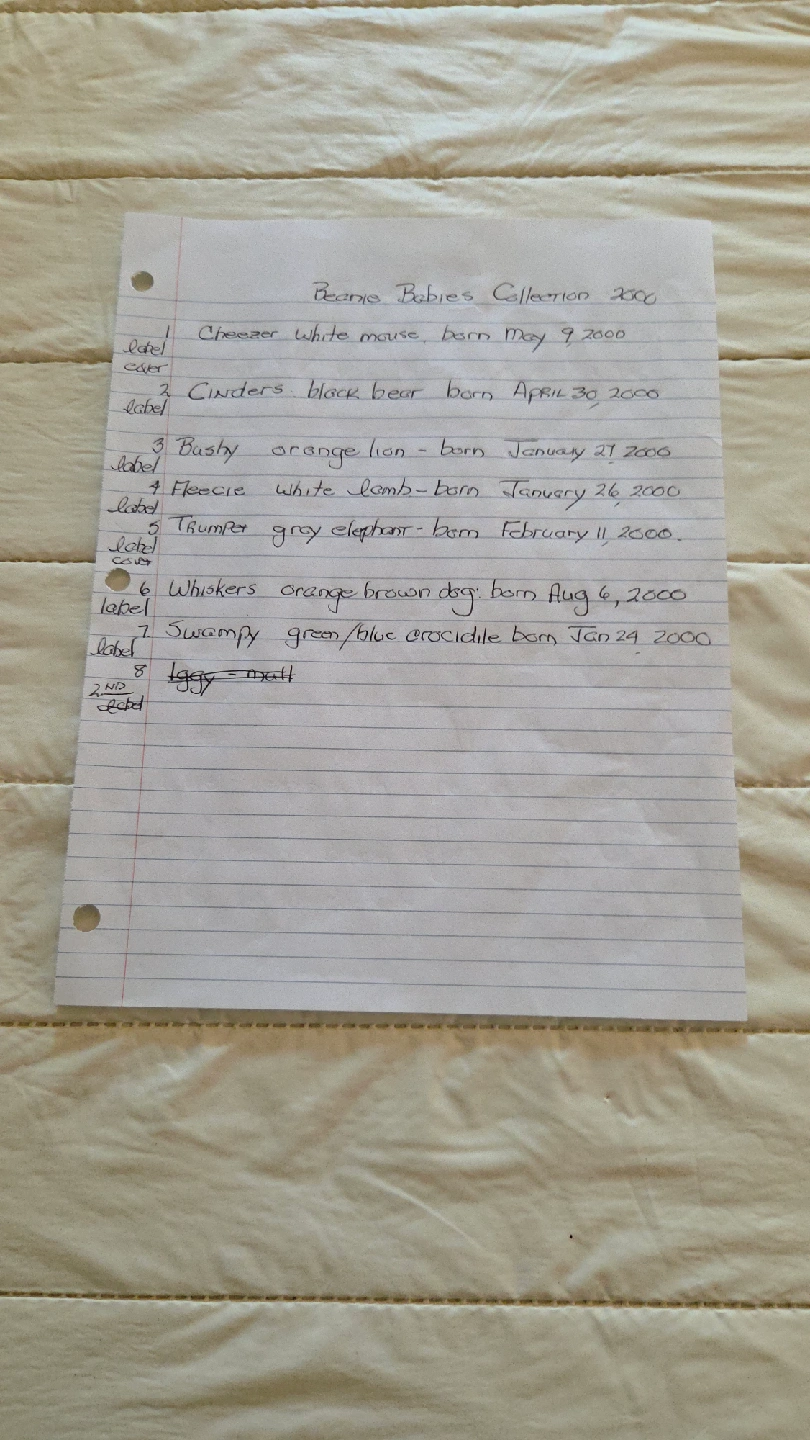 Beanie Babies Collection 2000
1 Cheezer white mouse, born May 9, 2000
label
cover
2 Cinders black bear born April 30, 2000
label
3 Bushy orange lion - born January 27 2000
label
4 Fleecie white lamb - born January 26, 2000
label
5 Trumpet gray elephant - born February 11, 2000.
label
cover
6 Whiskers orange brown dog: born Aug 6, 2000
label
7 Swampy green/blue crocidile born Jan 24, 2000
label
8 Iggy -
2ND
label